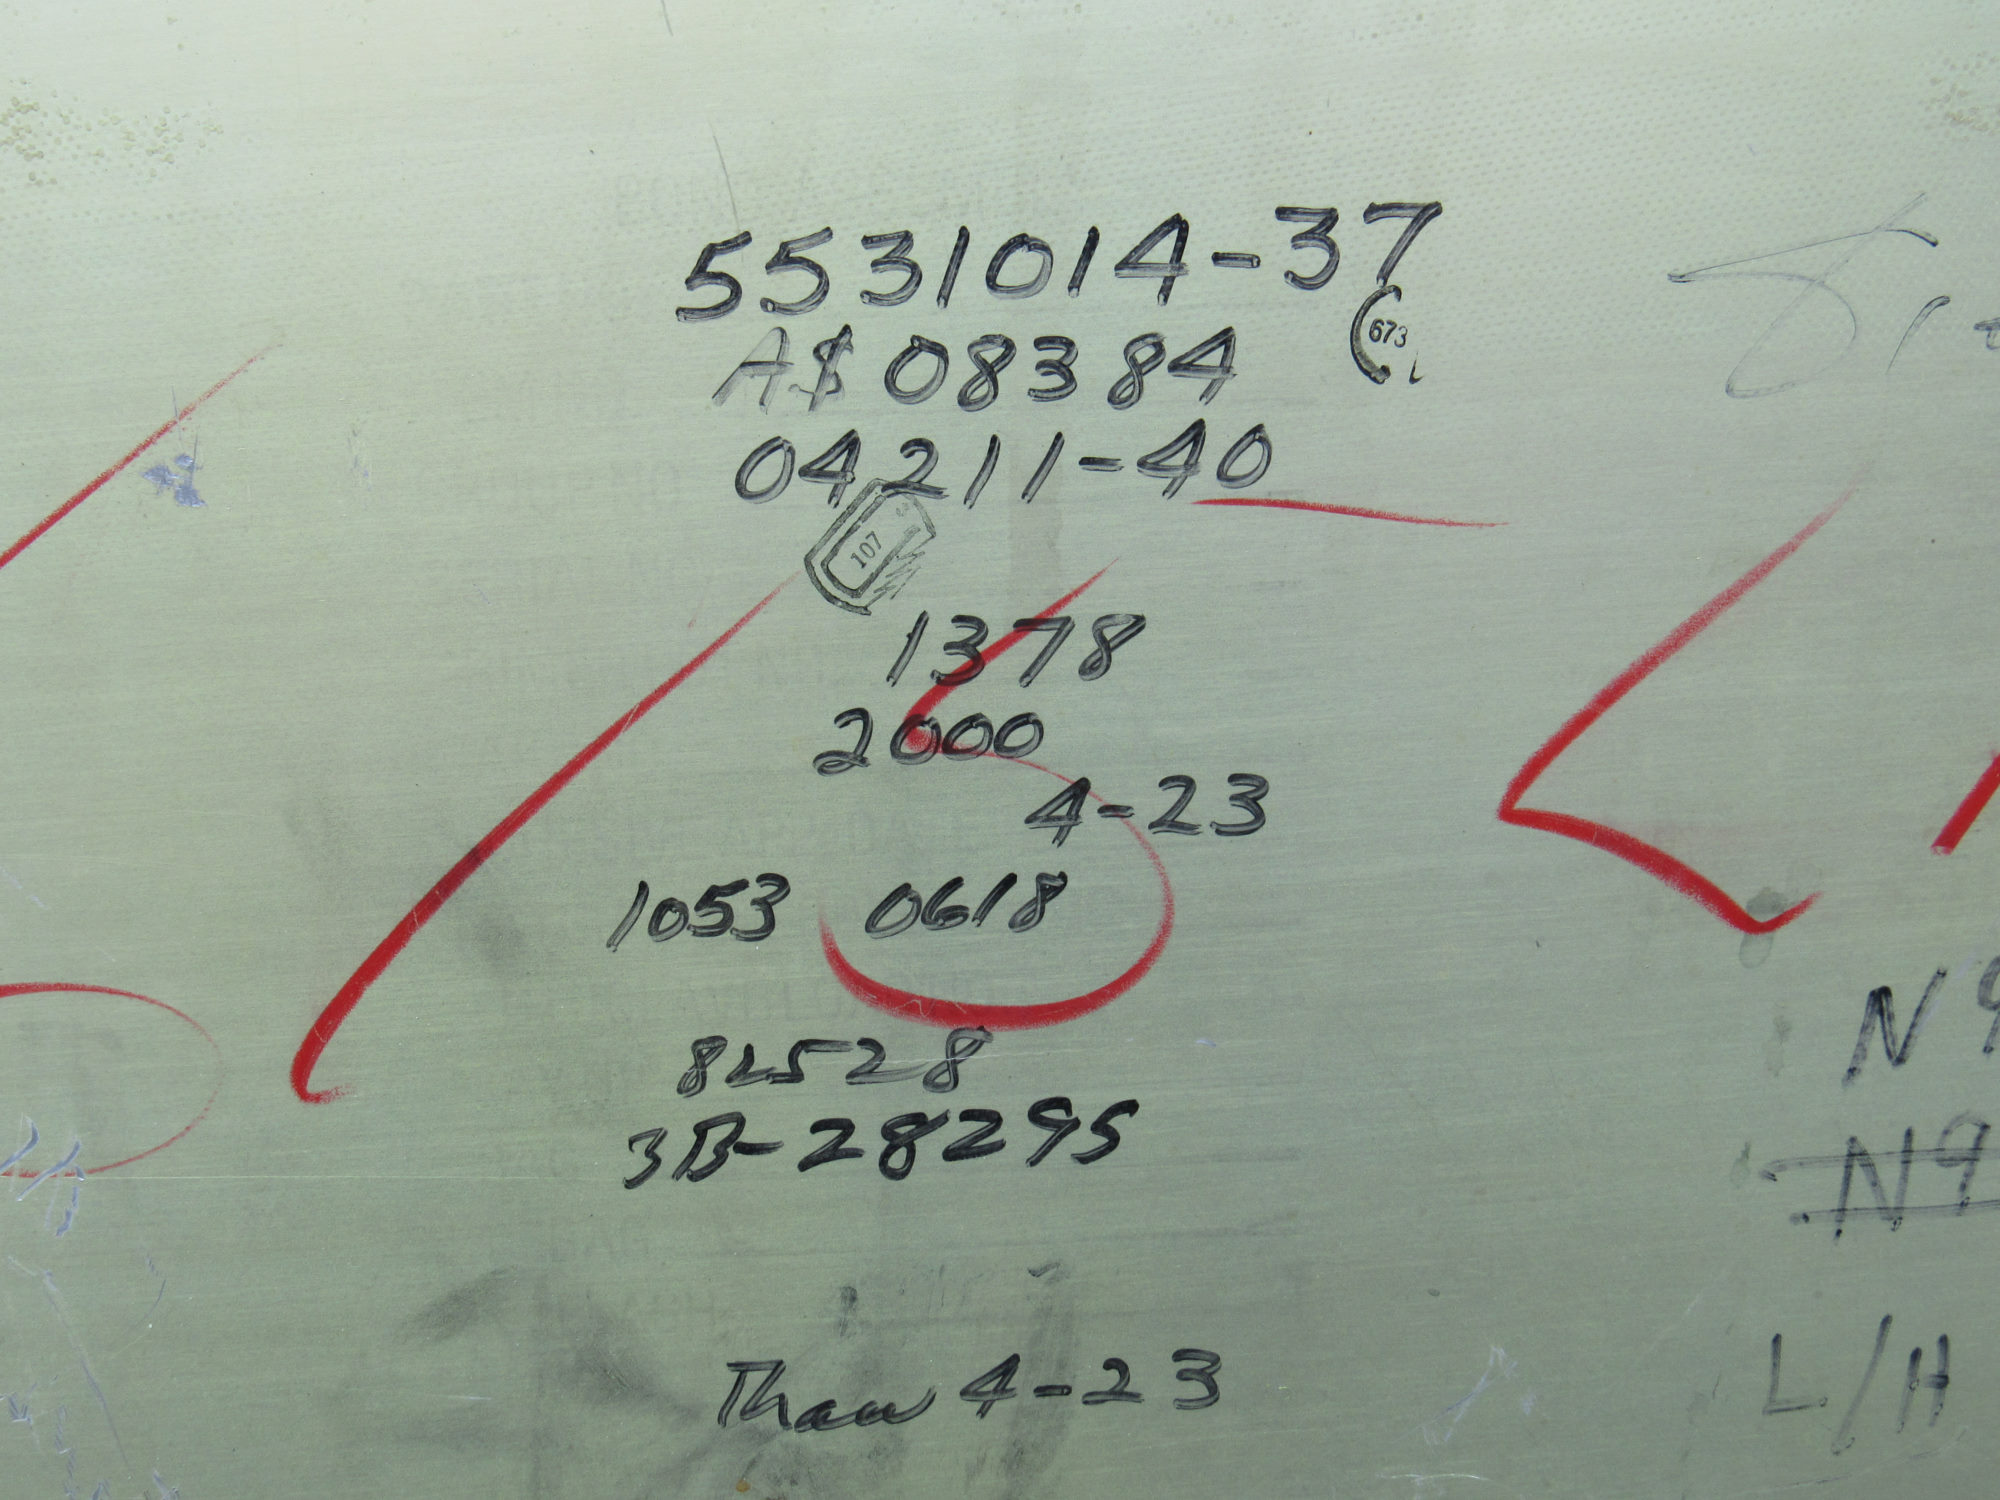 5531014-37
673
A$ 08384
04211-40
107
1378
2000
4-23
1053 0618
82528
3B-28295
N9
N9
Thaw 4-23
L/H